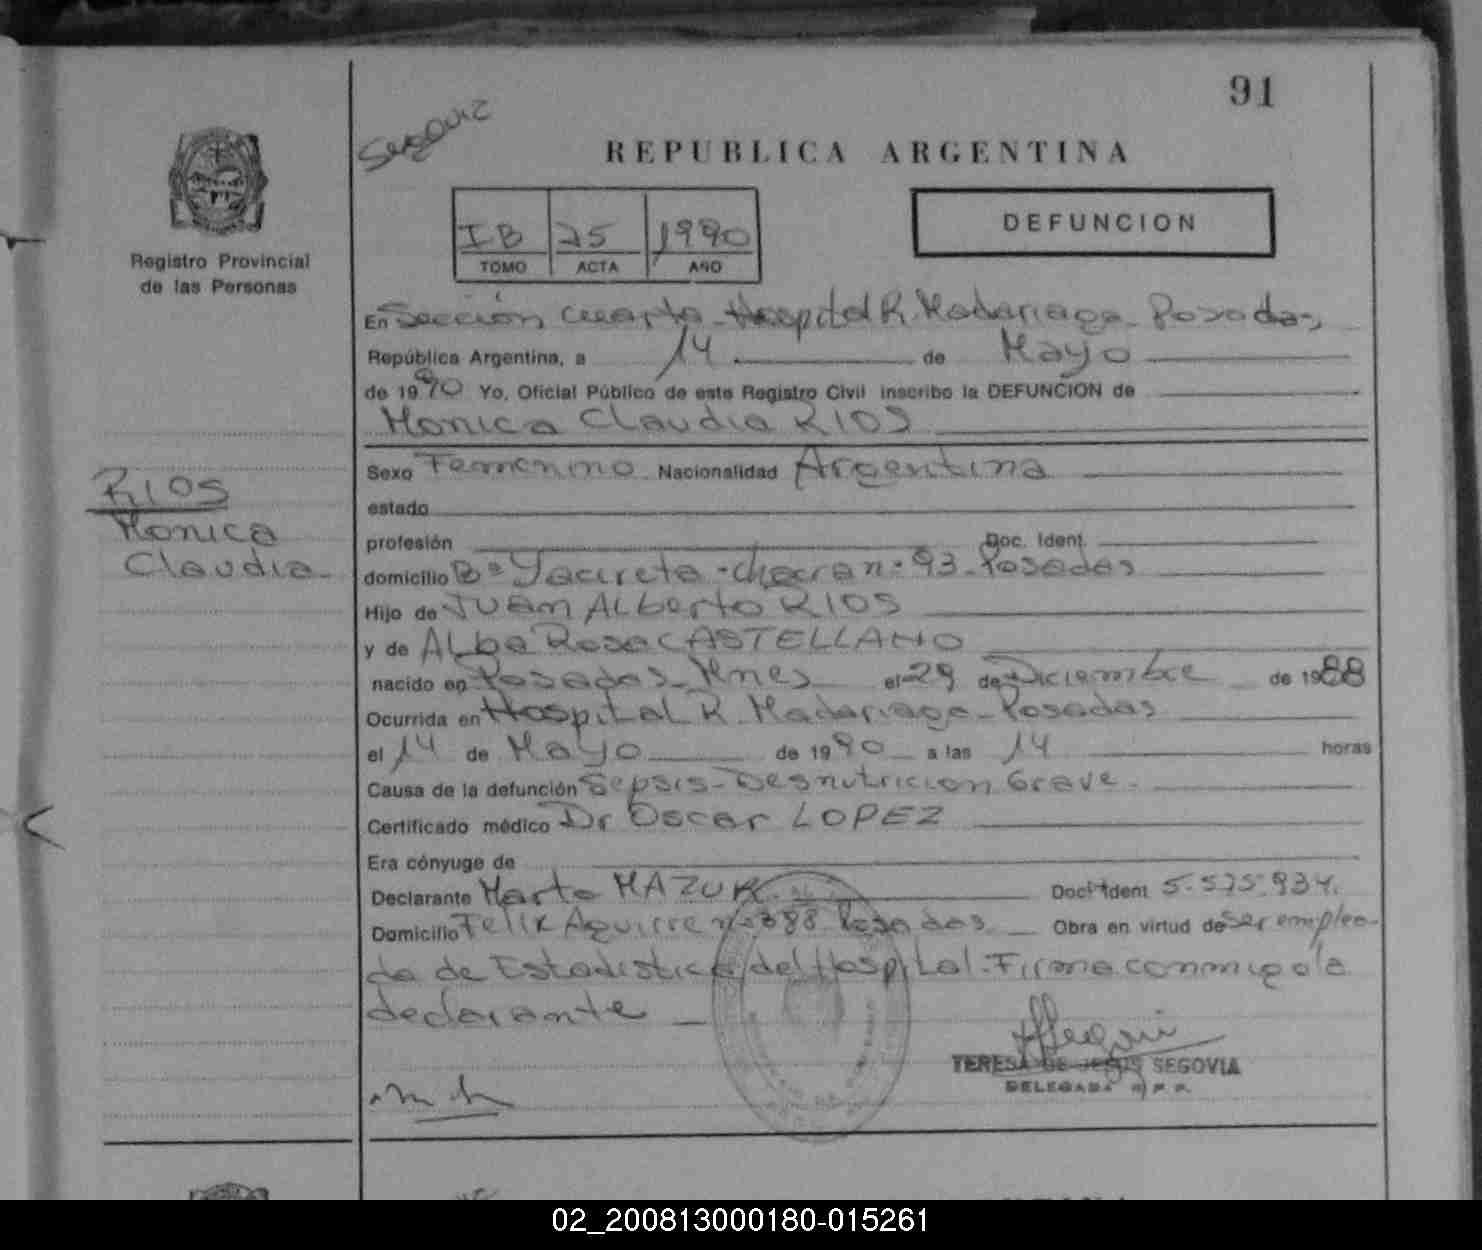 91
REPUBLICA ARGENTINA
Registro Provincial
de las Personas
IB 25 1990
TOMO ACTA AÑO
DEFUNCION
En Sección cuarta - Hospital R. Madariaga - Posadas,
República Argentina, a 14 de Mayo
de 1990 Yo, Oficial Público de este Registro Civil inscribo la DEFUNCION de
Monica Claudia RIOS
RIOS
Monica
Claudia
Sexo Femenino Nacionalidad Argentina
estado
profesión Doc. Ident.
domicilio Bº Yacireta - chacra nº 93 - Posadas
Hijo de JUAN ALberto RIOS
y de ALba Rosa CASTELLANO
nacido en Posadas - Mnes el 29 de Diciembre de 1988
Ocurrida en Hospital R. Madariaga - Posadas
el 14 de Mayo de 1990 a las 14 horas
Causa de la defunción Sepsis - Desnutricion Grave.
Certificado médico Dr Oscar LOPEZ
Era cónyuge de
Declarante Marta MAZUR Doc. Ident 5.575.934.
Domicilio Felix Aguirre nº 388 Posadas Obra en virtud de ser emplea-
da de Estadistica del Hospital. Firma conmigo la
declarante
TERESA DE JESUS SEGOVIA
DELEGADA R.P.P.
02_200813000180-015261